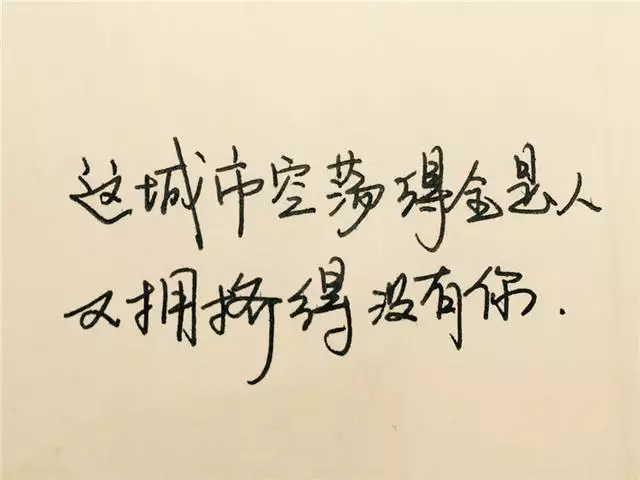 这城市空荡得全是人
又拥挤得没有你.